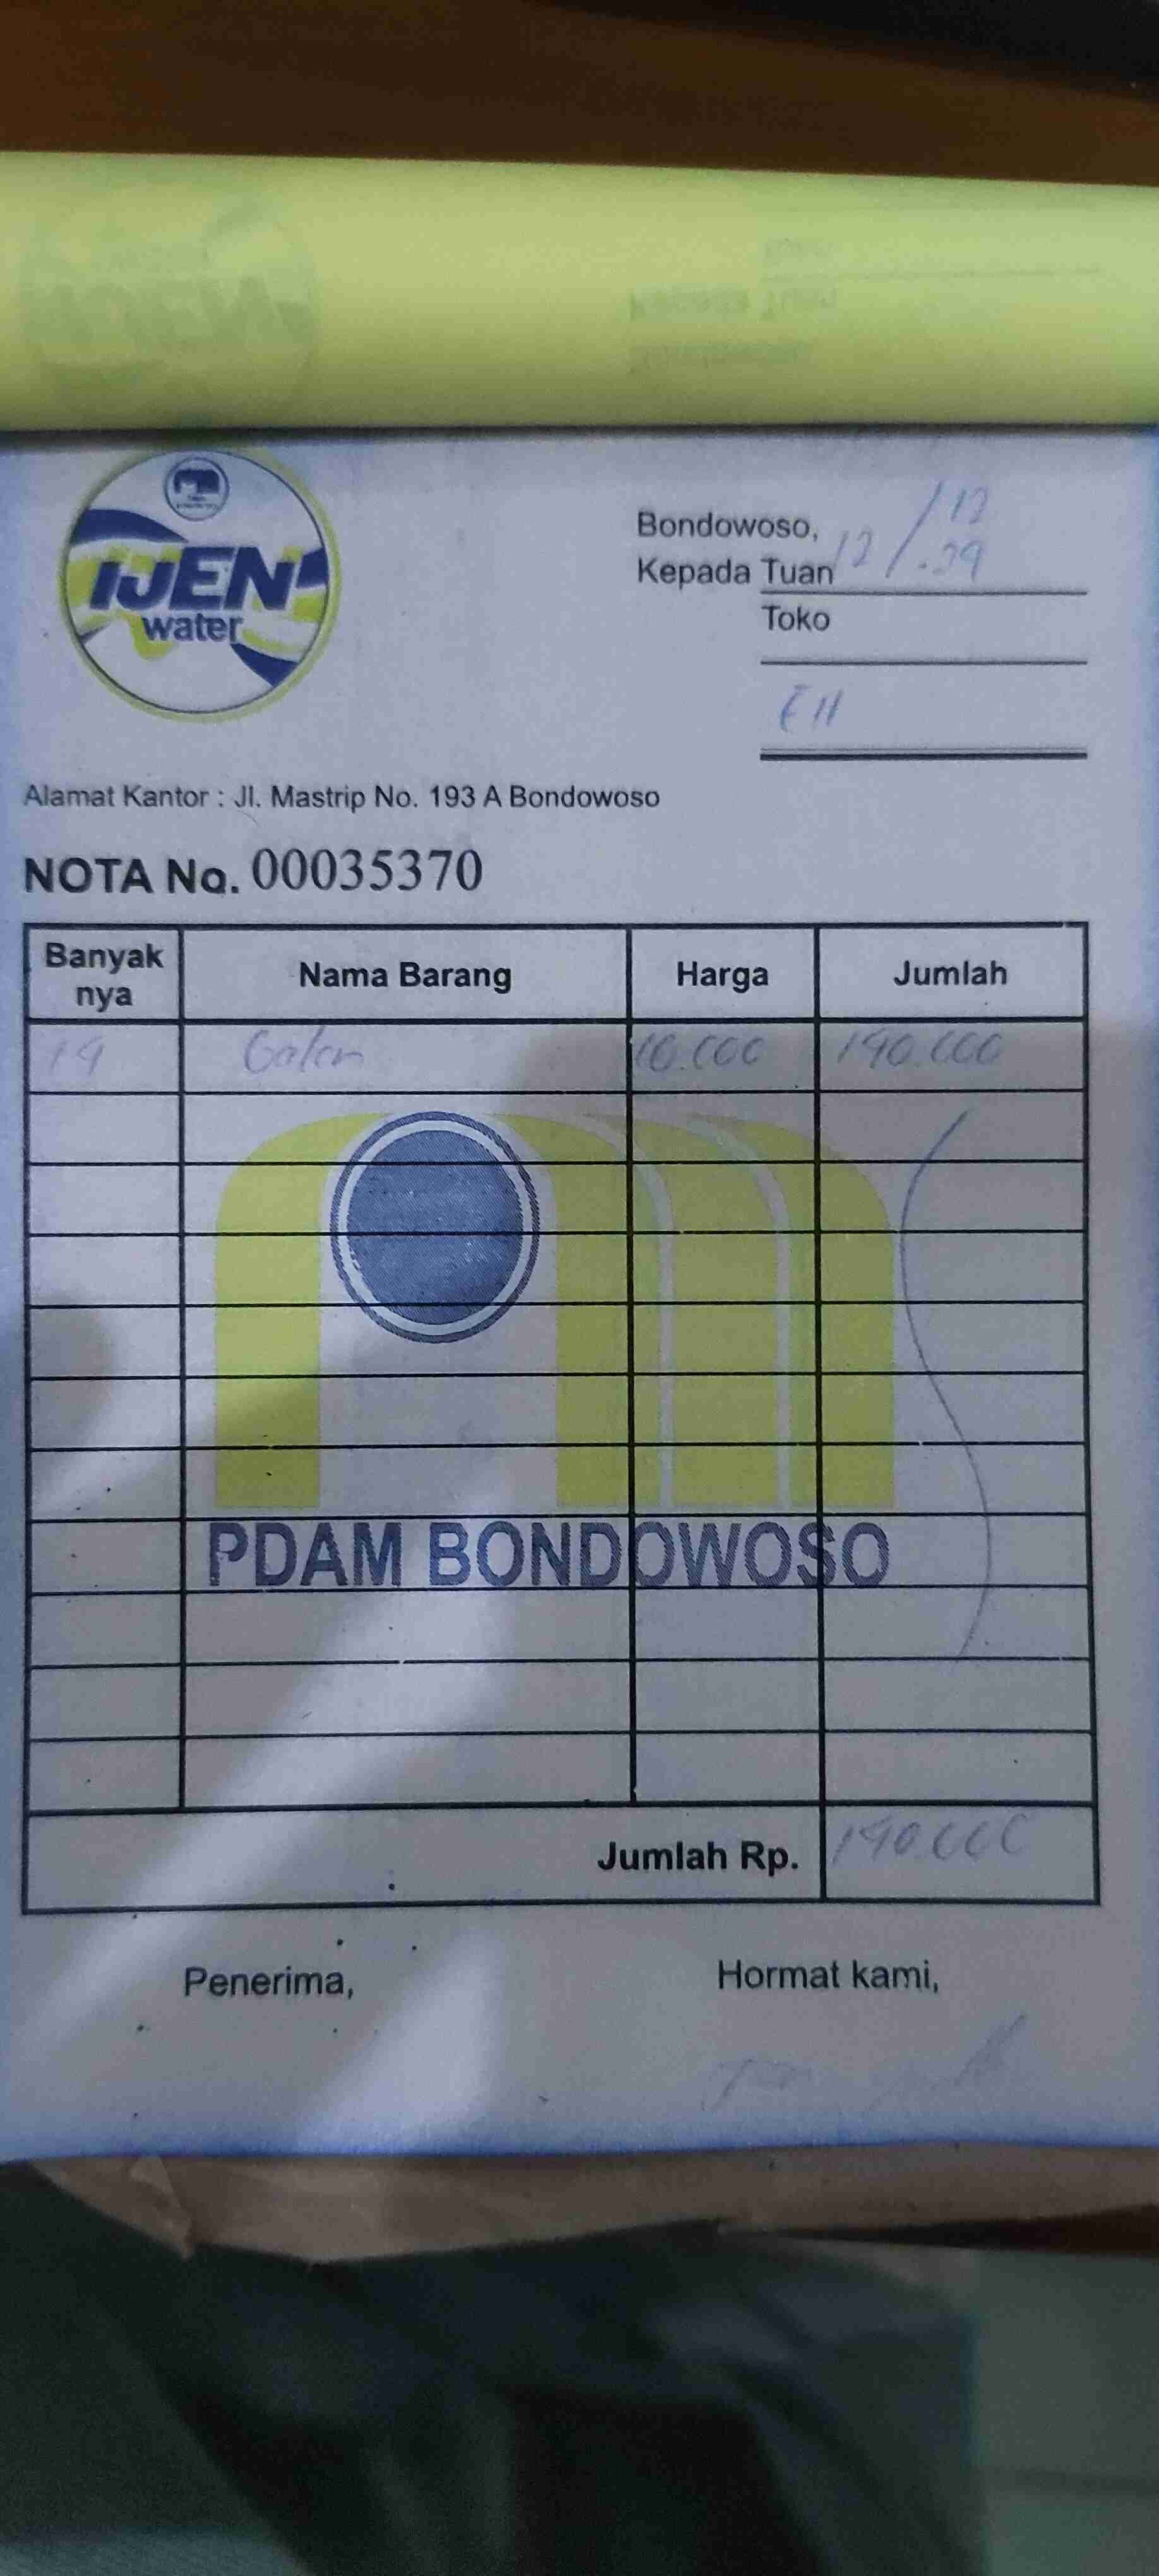 IJEN
water
Bondowoso, 12/12
Kepada Tuan
Toko
Alamat Kantor : Jl. Mastrip No. 193 A Bondowoso
NOTA No. 00035370
Banyak nya Nama Barang Harga Jumlah
19 Galon 10.000 190.000
PDAM BONDOWOSO
Jumlah Rp. 190.000
Penerima, Hormat kami,